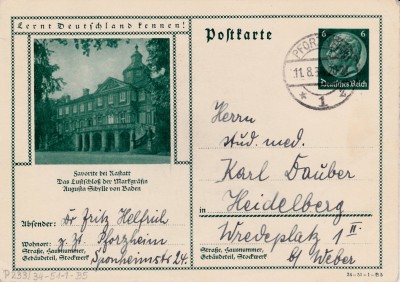 Lernt Deutschland kennen!
Postkarte
6 6
Deutsches Reich
PFOR
11.8.3
* 1 z
Favorite bei Rastatt
Das Lustschloß der Markgräfin
Augusta Sibylle von Baden
Absender: Dr Fritz Helfrich
Wohnort: z. Zt. Pforzheim
Straße, Hausnummer, Sponheimstr 24.
Gebäudeteil, Stockwerk
P233/34-51-1-B5
Herrn
stud. med.
Karl Dauber
in Heidelberg
Wredeplatz 1 II.
b/ Weber
Straße, Hausnummer,
Gebäudeteil, Stockwerk
34-51-1-B5